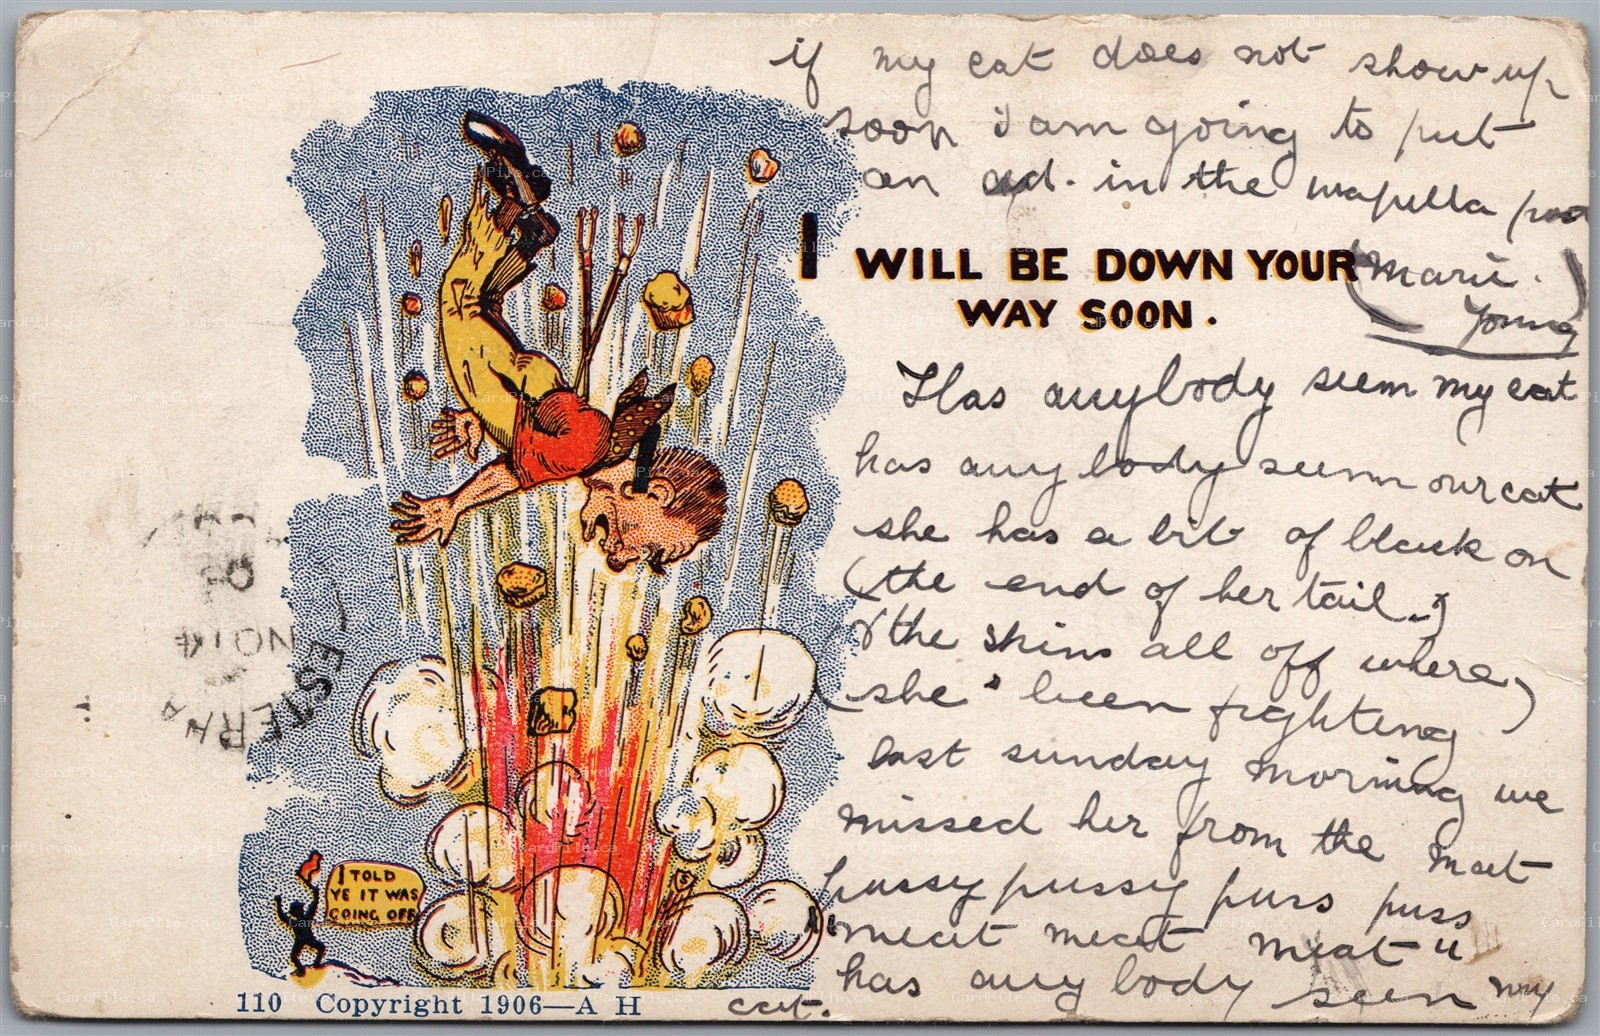 if my cat does not show up
soon i am going to put
an ad. in the wapella post
I WILL BE DOWN YOUR
WAY SOON.
(Marie.
Young)
Has anybody seem my cat
has any body seem our cat
she has a bit of black on
(the end of her tail.)
(& the skins all off where)
(she's been fighting)
last sunday morning we
missed her from the mat
pussy pussy puss puss
"meat meat meat"
has any body seen my
cat.
I TOLD
YE IT WAS
GOING OFF
110 Copyright 1906—A H